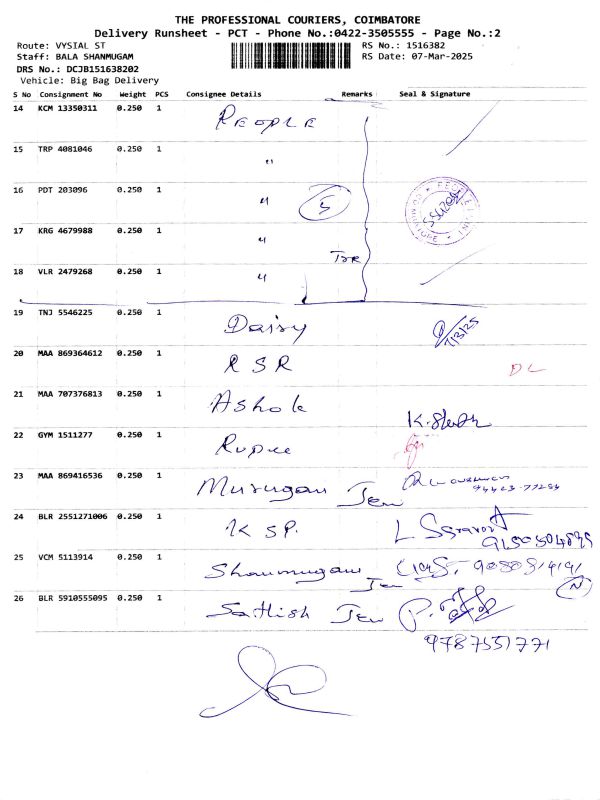 THE PROFESSIONAL COURIERS, COIMBATORE
Delivery Runsheet - PCT - Phone No.:0422-3505555 - Page No.:2
Route: VYSIAL ST
RS No.: 1516382
Staff: BALA SHANMUGAM
RS Date: 07-Mar-2025
DRS No.: DCJB151638202
Vehicle: Big Bag Delivery
S No Consignment No Weight PCS Consignee Details Remarks Seal & Signature
14 KCM 13350311 0.250 1 PEOPLE
15 TRP 4081046 0.250 1 "
16 PDT 203096 0.250 1 " 5
17 KRG 4679988 0.250 1 "
18 VLR 2479268 0.250 1 "
19 TNJ 5546225 0.250 1 Daisy 7/3/25
20 MAA 869364612 0.250 1 RSR
21 MAA 707376813 0.250 1 Ashok
22 GYM 1511277 0.250 1 Rupee
23 MAA 869416536 0.250 1 Murugan Jew
24 BLR 2551271006 0.250 1 K SP.
25 VCM 5113914 0.250 1 Shanmugam Jew
26 BLR 5910555095 0.250 1 Sathish Jew
9787551771